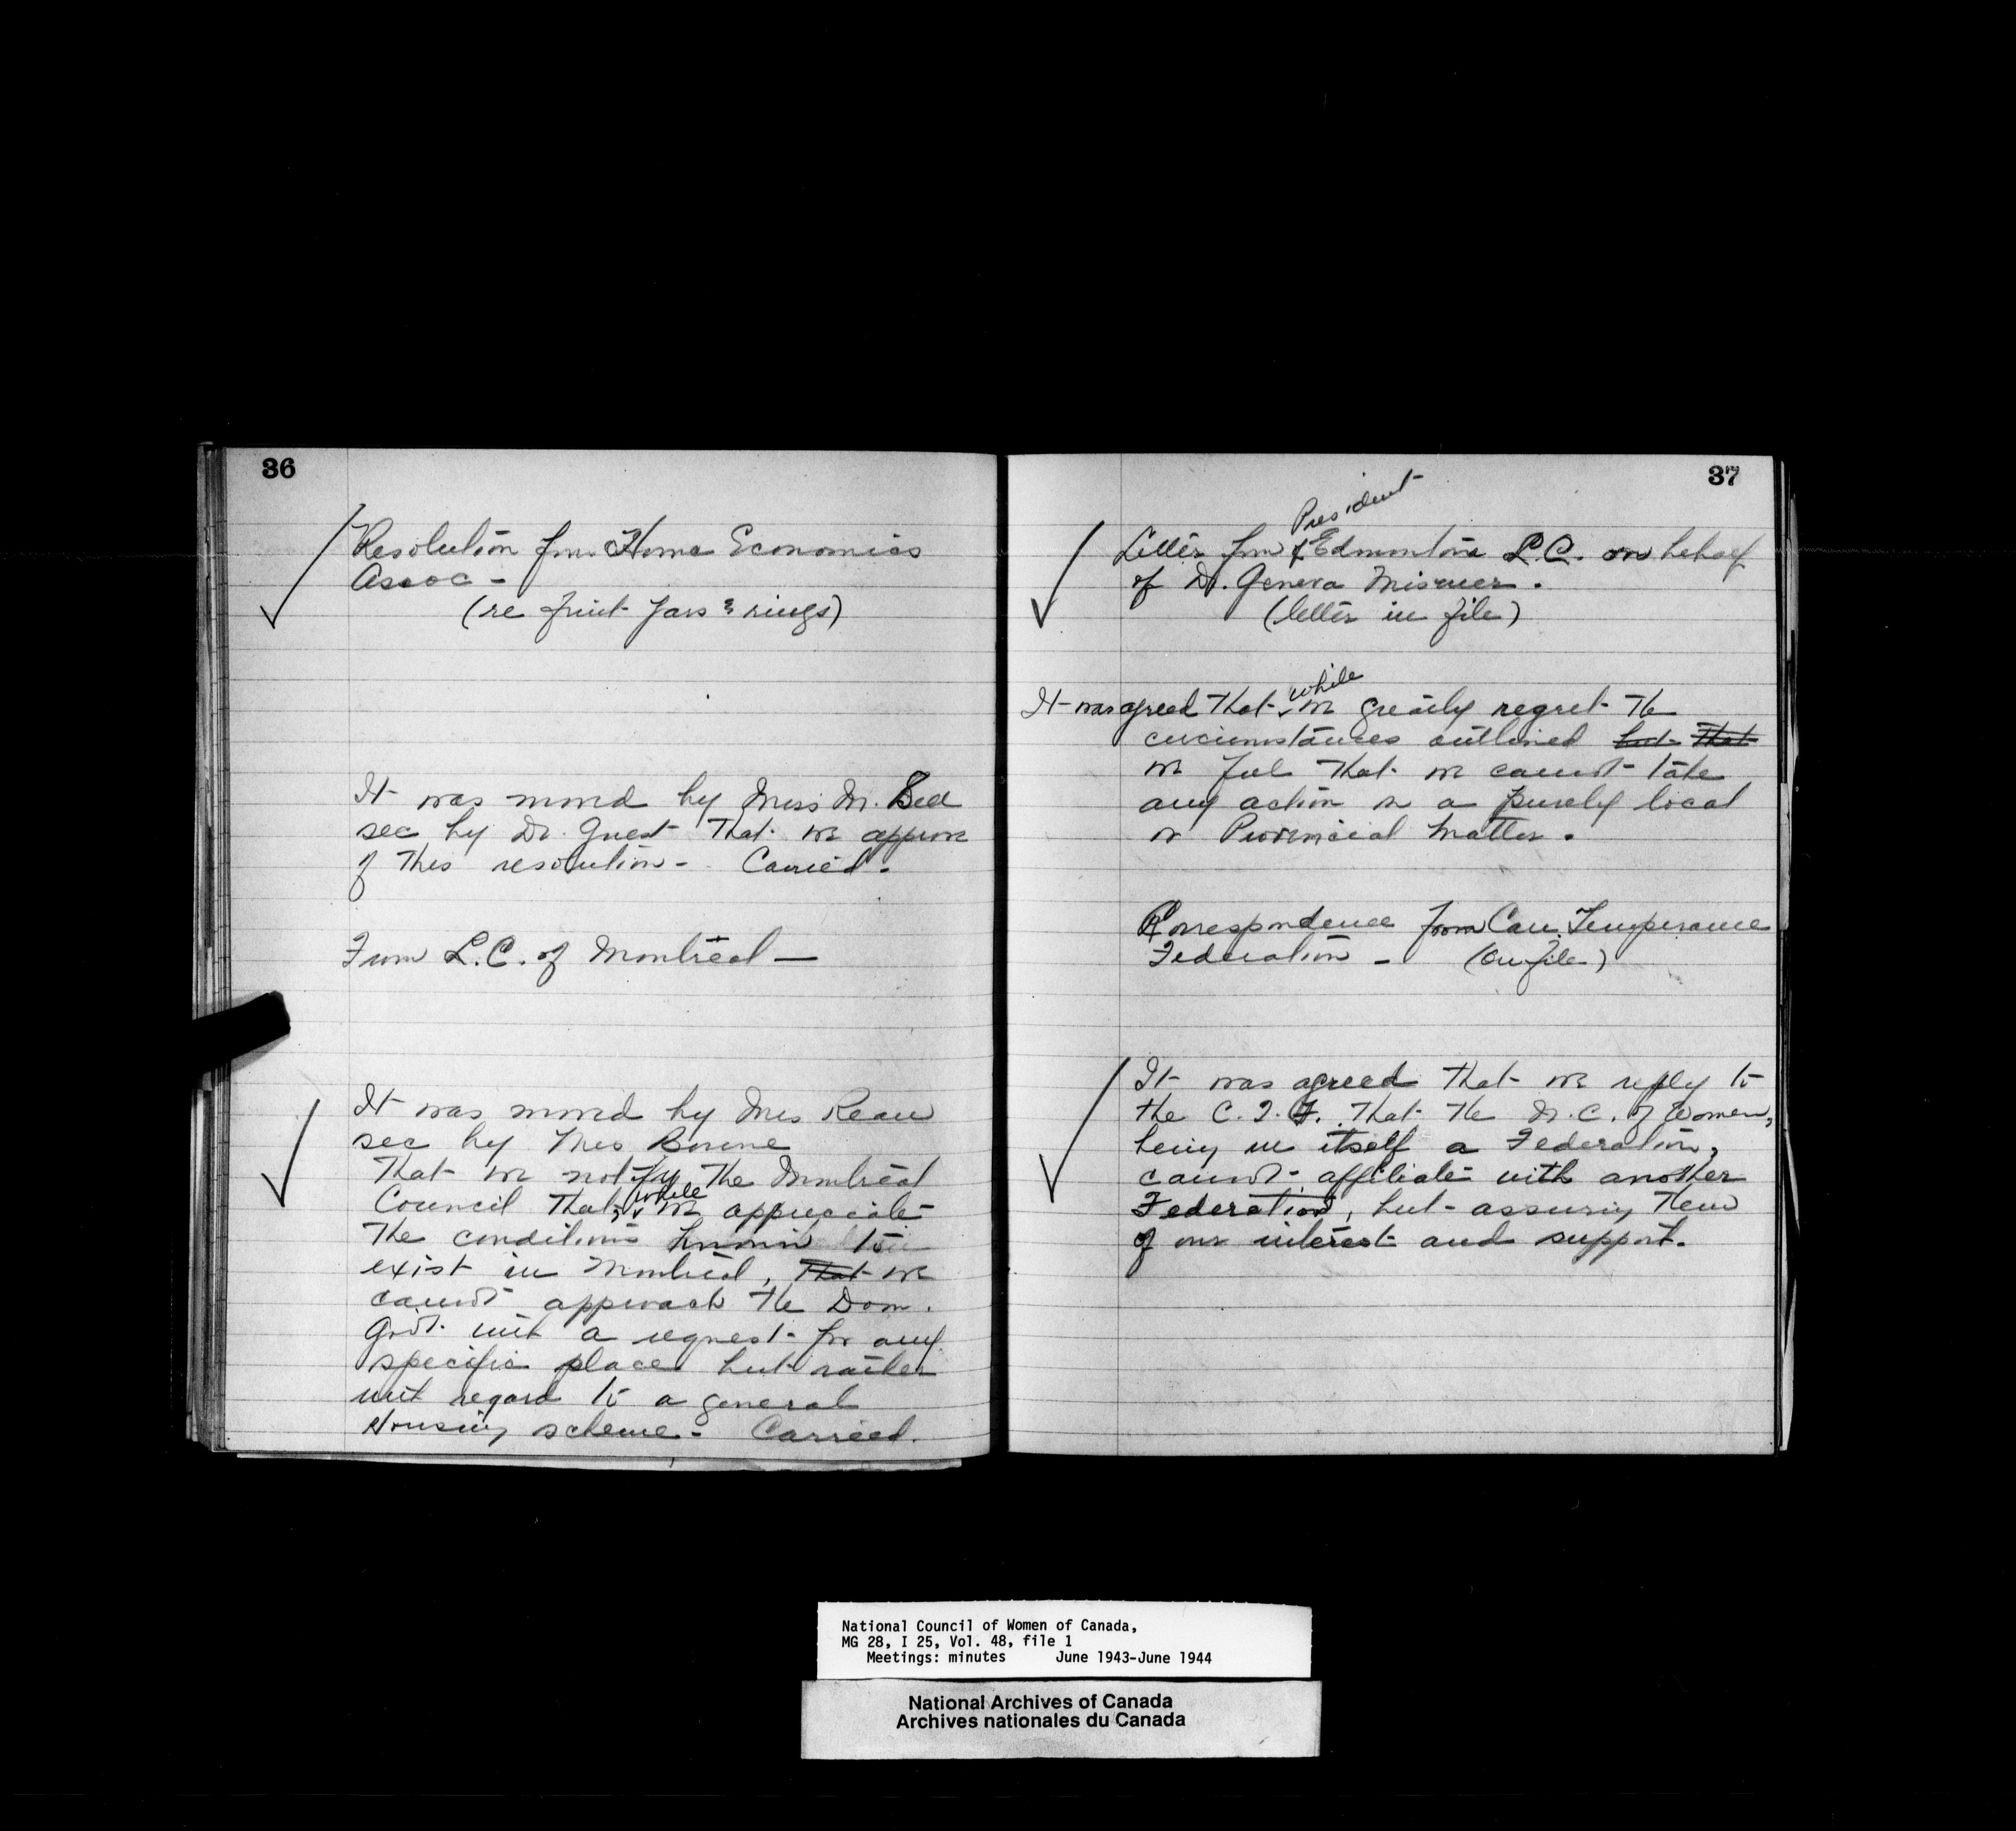 36
Resolution from Home Economics
Assoc -
(re fruit jars & rings)
It was moved by Miss M. Bell
sec by Dr. Guest that we approve
of this resolution - Carried.
From L.C. of Montreal —
It was moved by Mrs
sec by Mrs Bourne
That we notify the Montreal
Council that, while we appreciate
the conditions known to
exist in Montreal, that we
cannot approach the Dom.
Govt. with a request for any
specific place but rather
with regard to a general
Housing scheme - Carried.
37
President
Letter from Edmonton L.C. on behalf
of Dr. Geneva Misener.
(letter in file)
It was agreed that while we greatly regret the
circumstances outlined but that
we feel that we cannot take
any action in a purely local
or Provincial matter.
Correspondence from Can. Temperance
Federation - (on file)
It was agreed that we reply to
the C.T.F. that the N.C. of Women,
being in itself a Federation,
cannot affiliate with another
Federation, but assuring them
of our interest and support.
National Council of Women of Canada,
MG 28, I 25, Vol. 48, file 1
Meetings: minutes June 1943-June 1944
National Archives of Canada
Archives nationales du Canada